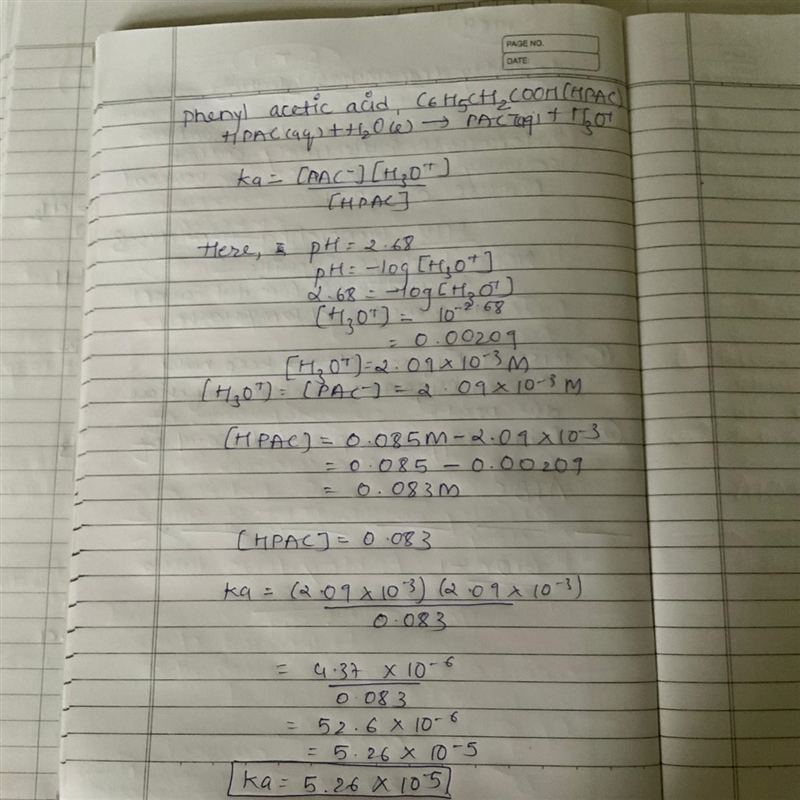 PAGE NO.
DATE:
phenyl acetic acid, C6H5CH2COOH(HPAC)
HPAC(aq) + H2O(l) → PAC-(aq) + H3O+
ka = [PAC-][H3O+]
[HPAC]
Here, pH = 2.68
pH = -log[H3O+]
2.68 = -log[H3O+]
[H3O+] = 10-2.68
= 0.00209
[H3O+] = 2.09 × 10-3 M
[H3O+] = [PAC-] = 2.09 × 10-3 M
[HPAC] = 0.085M - 2.09 × 10-3
= 0.085 - 0.00209
= 0.083M
[HPAC] = 0.083
ka = (2.09 × 10-3) (2.09 × 10-3)
0.083
= 4.37 × 10-6
0.083
= 52.6 × 10-6
= 5.26 × 10-5
ka = 5.26 × 10-5